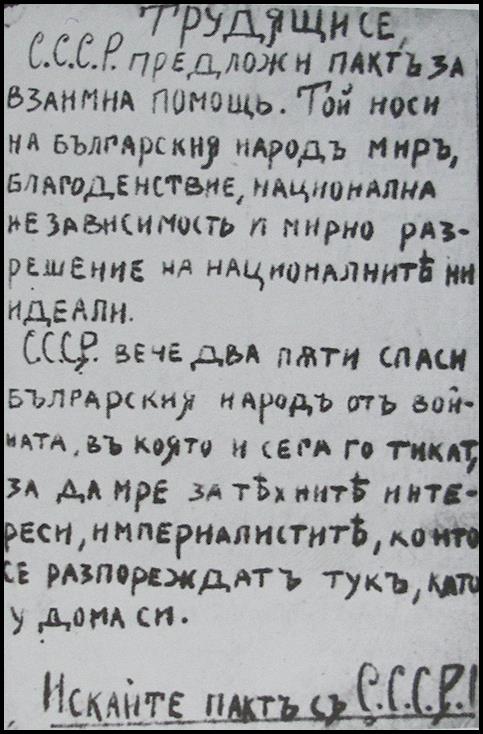 ТРУДЯЩИ СЕ,
С.С.С.Р. ПРЕДЛОЖИ ПАКТЪ ЗА
ВЗАИМНА ПОМОЩЬ. ТОЙ НОСИ
НА БЪЛГАРСКИЯ НАРОДЪ МИРЪ,
БЛАГОДЕНСТВИЕ, НАЦИОНАЛНА
НЕЗАВИСИМОСТЬ И МИРНО РАЗ-
РЕШЕНИЕ НА НАЦИОНАЛНИТѢ НИ
ИДЕАЛИ.
С.С.С.Р. ВЕЧЕ ДВА ПѪТИ СПАСИ
БЪЛГАРСКИЯ НАРОДЪ ОТЪ ВОЙ-
НАТА, ВЪ КОЯТО И СЕГА ГО ТИКАТ,
ЗА ДА МРЕ ЗА ТѢХНИТѢ ИНТЕ-
РЕСИ, ИМПЕРИАЛИСТИТѢ, КОИТО
СЕ РАЗПОРЕЖДАТЪ ТУКЪ, КАТО
У ДОМА СИ.
ИСКАЙТЕ ПАКТЪ СЪ С.С.С.Р.!